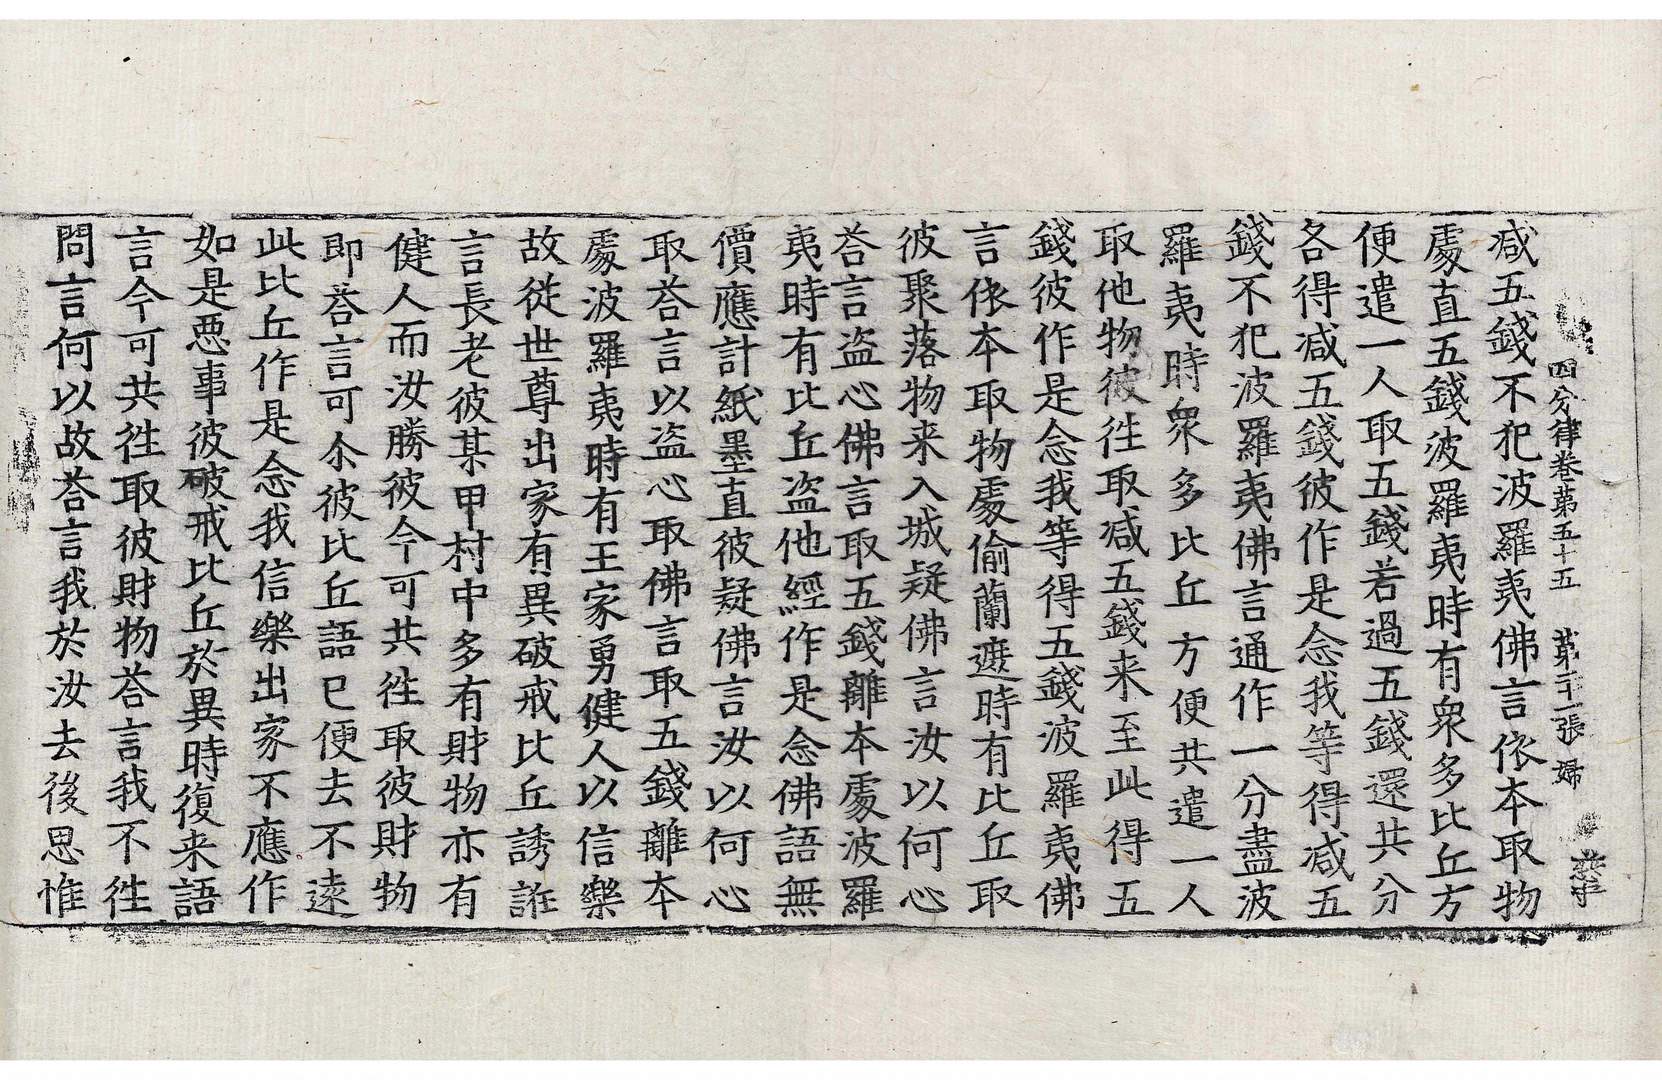 四分律卷第五十五 第二十一張 婦
減五錢不犯波羅夷佛言依本取物
處直五錢波羅夷時有衆多比丘方
便遣一人取五錢若過五錢還共分
各得減五錢彼作是念我等得減五
錢不犯波羅夷佛言通作一分盡波
羅夷時衆多比丘方便共遣一人
取他物彼徃取減五錢来至此得五
錢彼作是念我等得五錢波羅夷佛
言依本取物處偷蘭遮時有比丘取
彼聚落物来入城疑佛言汝以何心
荅言盗心佛言取五錢離本處波羅
夷時有比丘盗他經作是念佛語無
價應計紙墨直彼疑佛言汝以何心
取荅言以盗心取佛言取五錢離本
處波羅夷時有王家勇健人以信樂
故從世尊出家有異破戒比丘誘誑
言長老彼某甲村中多有財物亦有
健人而汝勝彼今可共徃取彼財物
即荅言可尒彼比丘語已便去不遠
此比丘作是念我信樂出家不應作
如是惡事彼破戒比丘於異時復来語
言今可共徃取彼財物荅言我不徃
問言何以故荅言我於汝去後思惟